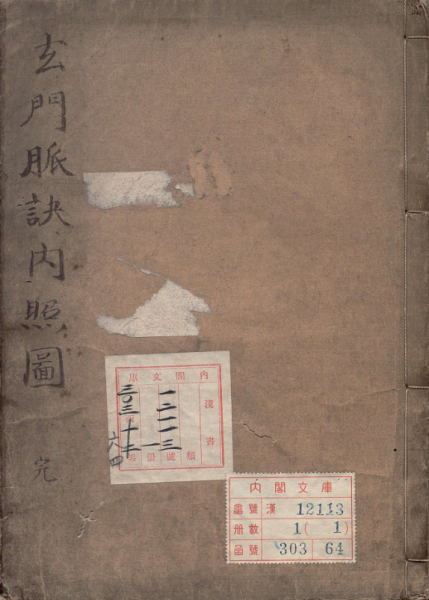 玄門脈訣内照圖
完
内閣文庫
漢書
一二一一三
號
一
三〇三
六四
内閣文庫
番號 漢 12113
冊數 1(1)
函號 303 64